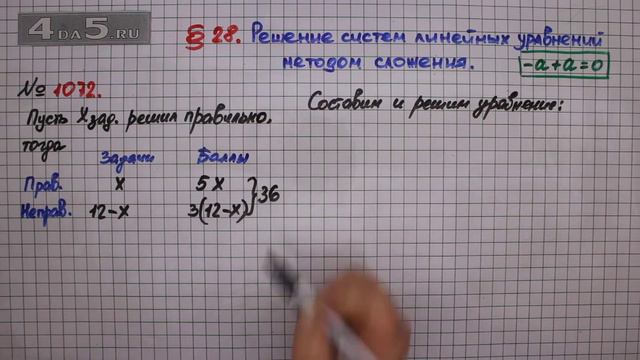 4DA5.RU
§ 28. Решение систем линейных уравнений
методом сложения.
-a+a=0
№ 1072.
Пусть X зад. решил правильно,
тогда
Составим и решим уравнение:
Задачи Баллы
Прав. x 5x
Неправ. 12-x 3(12-x) } 36